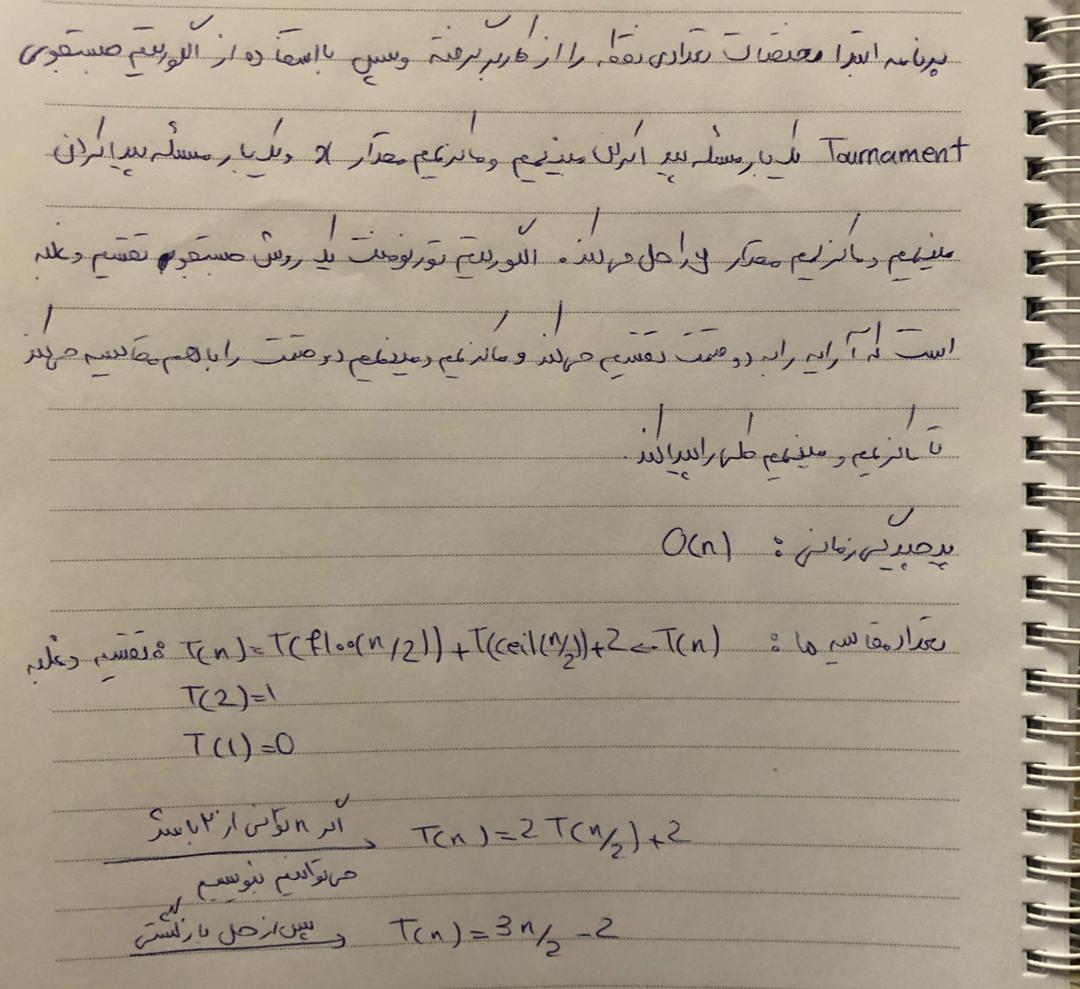 برنامه ابتدا مختصات تعدادی نقطه را از کاربر گرفته و سپس با استفاده از الگوریتم جستجوی
Tournament یک بار مسئله پیدا کردن مینیمم و ماکزیمم مقدار x و یک بار مسئله پیدا کردن
مینیمم و ماکزیمم مقدار y را حل می‌کند. الگوریتم تورنومنت یک روش جستجوی تقسیم و غلبه
است که آرایه را به دو قسمت تقسیم می‌کند و ماکزیمم و مینیمم دو قسمت را با هم مقایسه می‌کند
تا ماکزیمم و مینیمم کلی را پیدا کند.
پیچیدگی زمانی : O(n)
تعداد مقایسه ها : T(n) = T(floo(n/2)) + T(ceil(n/2)) + 2 ← T(n) : تقسیم و غلبه
T(2)=1
T(1)=0
اگر n توانی از ۲ باشد
می‌توانیم بنویسیم → T(n) = 2T(n/2) + 2
پس از حل بازگشتی → T(n) = 3n/2 - 2